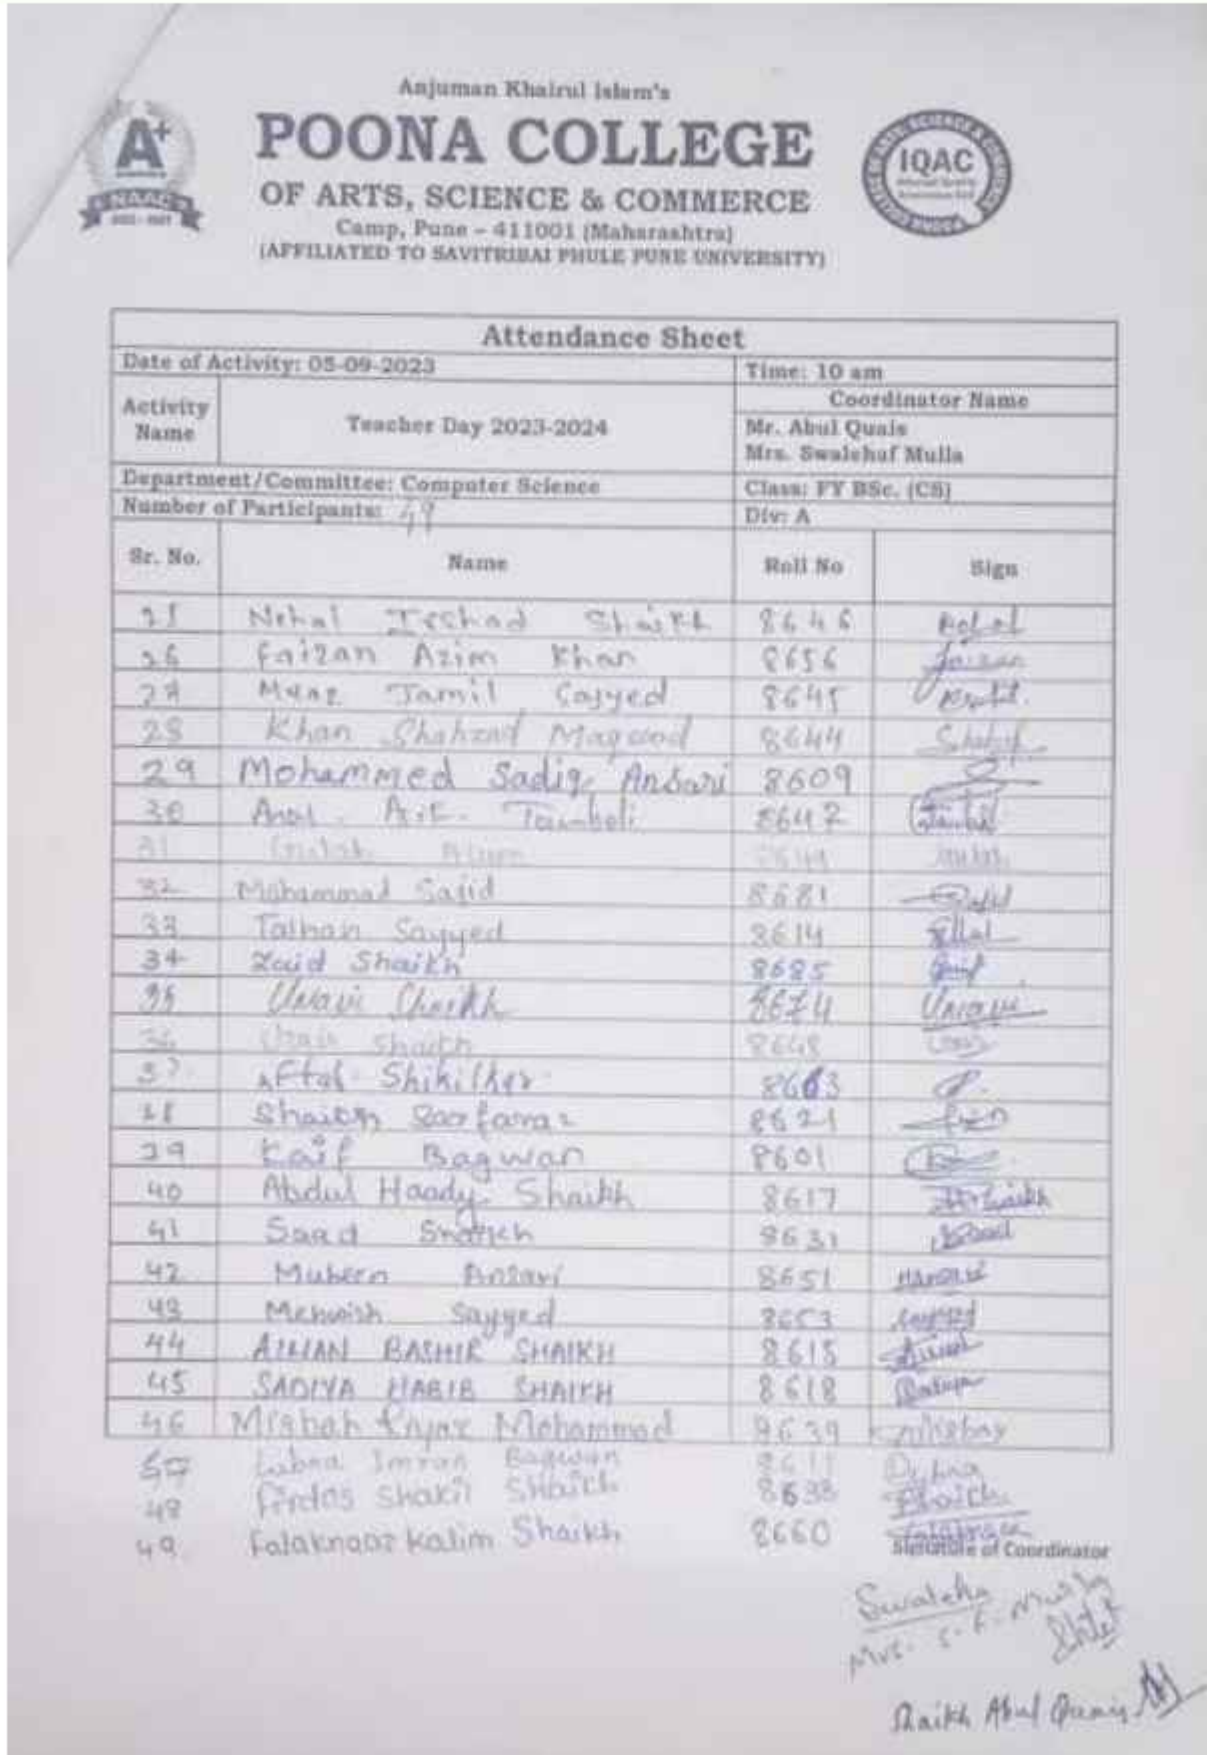 Anjuman Khairul Islam's
POONA COLLEGE
OF ARTS, SCIENCE & COMMERCE
Camp, Pune – 411001 (Maharashtra)
(AFFILIATED TO SAVITRIBAI PHULE PUNE UNIVERSITY)
A+
NAAC
IQAC
Attendance Sheet
Date of Activity: 05-09-2023 Time: 10 am
Activity Name Teacher Day 2023-2024 Coordinator Name
Mr. Abul Quais
Mrs. Swalehaf Mulla
Department/Committee: Computer Science Class: FY BSc. (CS)
Number of Participants: 49 Div: A
Sr. No. Name Roll No Sign
25 Nehal Irshad Shaikh 8646
26 Faizan Azim Khan 8656 faizan
27 Jamil Sayyed 8645
28 Khan Shahzad Maqsood 8644
29 Mohammed Sadiq Ansari 8609
30 Arif Tamboli 8647
31 Alam
32 Mohammad Sajid 8681 Sajid
33 Talhan Sayyed 8614
34 Zaid Shaikh 8685
35 Shaikh 8674
36 Shaikh 8648
37 Aftab Shikilkar 8663
38 Shaikh Sarfaraz 8621
39 Kaif Bagwan 8601
40 Abdul Haady Shaikh 8617 Shaikh
41 Saad Shaikh 8631 Saad
42 Mubeen Ansari 8651
43 Mehwish Sayyed 8653 Sayyed
44 BASHIR SHAIKH 8615
45 SADIYA HABIB SHAIKH 8618 Sadiya
46 Misbah Mohammad 8639 Misbah
Lubna Imran Bagwan
48 Firdos Shakil Shaikh 8638 Shaikh
49 Falaknaaz Kalim Shaikh 8660
of Coordinator
Swaleha
Mrs. S. F. Mulla
Shaikh Abul Quais